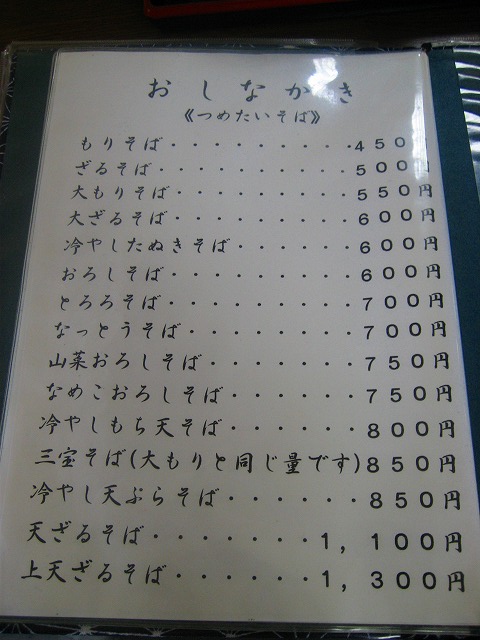 おしながき
《つめたいそば》
もりそば・・・・・・・・・450
ざるそば・・・・・・・・・500円
大もりそば・・・・・・・・550円
大ざるそば・・・・・・・・600円
冷やしたぬきそば・・・・・600円
おろしそば・・・・・・・・600円
とろろそば・・・・・・・・700円
なっとうそば・・・・・・・700円
山菜おろしそば・・・・・・750円
なめこおろしそば・・・・・750円
冷やしもち天そば・・・・・800円
三宝そば(大もりと同じ量です)850円
冷やし天ぷらそば・・・・・850円
天ざるそば・・・・・・・1,100円
上天ざるそば・・・・・・1,300円